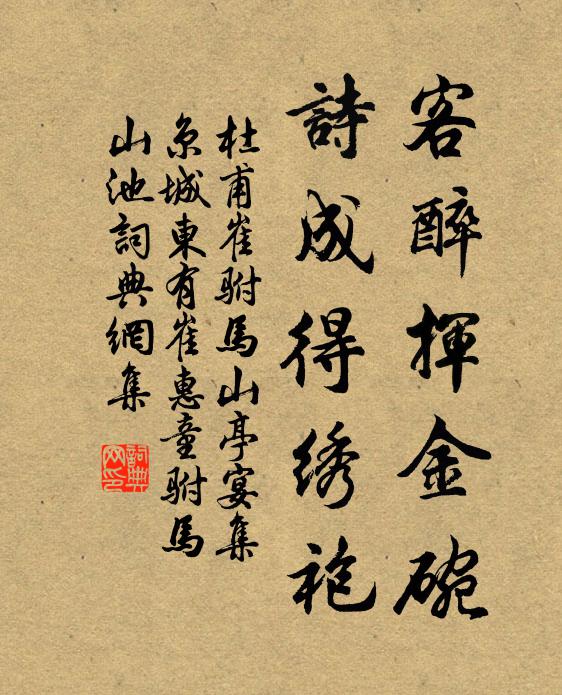 客醉揮金碗
詩成得绣袍
杜甫崔駙馬山亭宴集
京城東有崔惠童駙馬
山池詞典網集
詞典網印